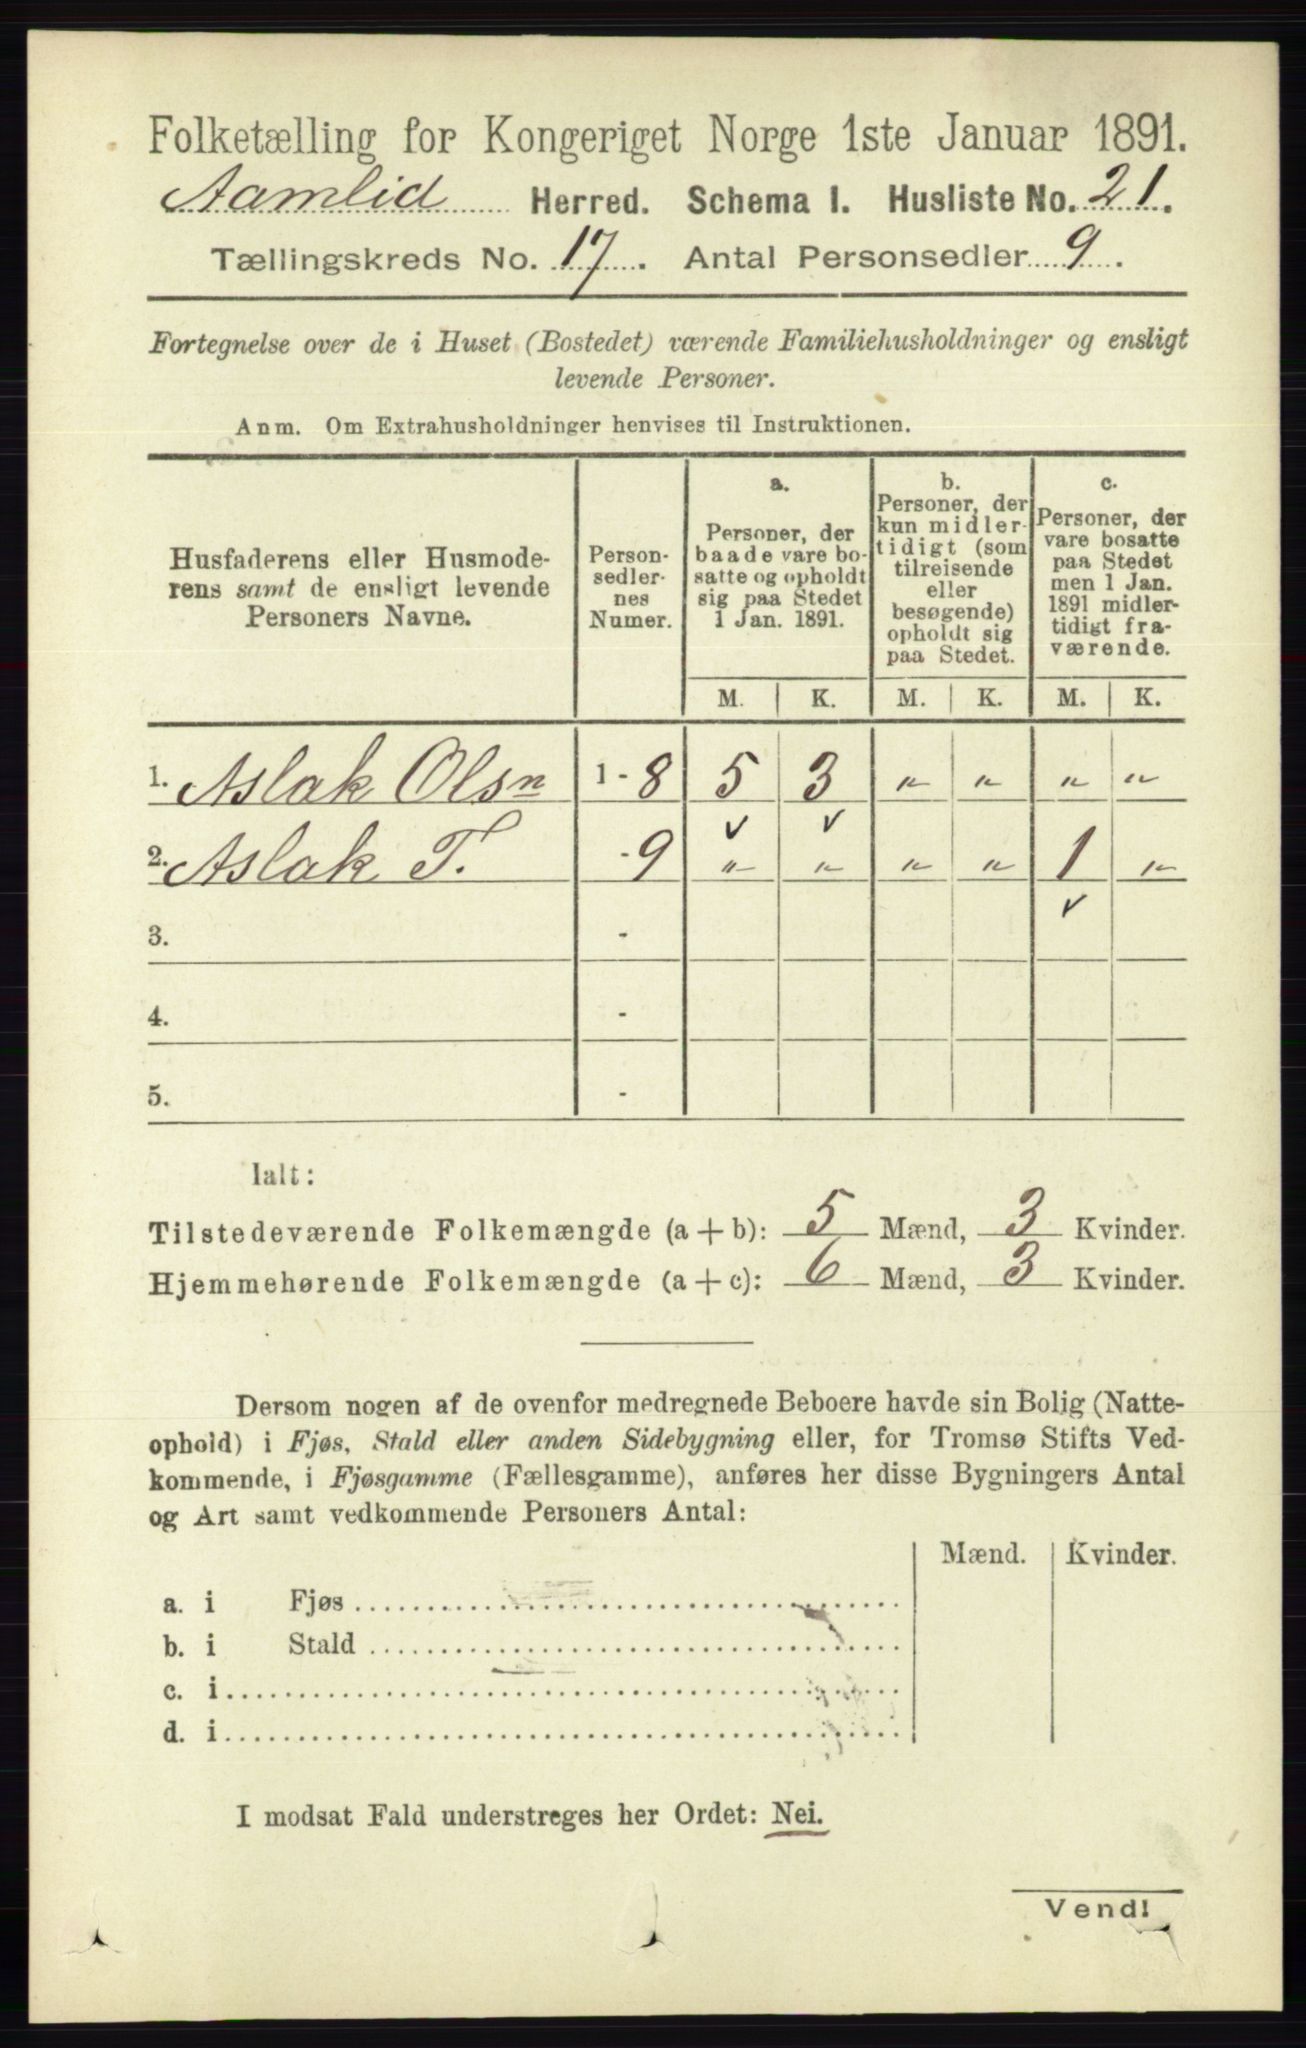 Folketælling for Kongeriget Norge 1ste Januar 1891.
Aamlid Herred. Schema I. Husliste No. 21.
Tællingskreds No. 17. Antal Personsedler 9.
Fortegnelse over de i Huset (Bostedet) værende Familiehusholdninger og ensligt
levende Personer.
Anm. Om Extrahusholdninger henvises til Instruktionen.
Husfaderens eller Husmode-
rens samt de ensligt levende
Personers Navne.
Person-
sedler-
nes
Numer.
a.
Personer, der
baade vare bo-
satte og opholdt
sig paa Stedet
1 Jan. 1891.
b.
Personer, der
kun midler-
tidigt (som
tilreisende
eller
besøgende)
opholdt sig
paa Stedet.
c.
Personer, der
vare bosatte
paa Stedet
men 1 Jan.
1891 midler-
tidigt fra-
værende.
M. K. M. K. M. K.
1. Aslak Olsn 1 - 8 5 3 " " " "
2. Aslak T. - 9 " " " " 1 "
3. -
4. -
5. -
Ialt:
Tilstedeværende Folkemængde (a + b): 5 Mænd, 3 Kvinder.
Hjemmehørende Folkemængde (a + c): 6 Mænd, 3 Kvinder.
Dersom nogen af de ovenfor medregnede Beboere havde sin Bolig (Natte-
ophold) i Fjøs, Stald eller anden Sidebygning eller, for Tromsø Stifts Ved-
kommende, i Fjøsgamme (Fællesgamme), anføres her disse Bygningers Antal
og Art samt vedkommende Personers Antal:
Mænd. Kvinder.
a. i Fjøs
b. i Stald
c. i
d. i
I modsat Fald understreges her Ordet: Nei.
Vend!